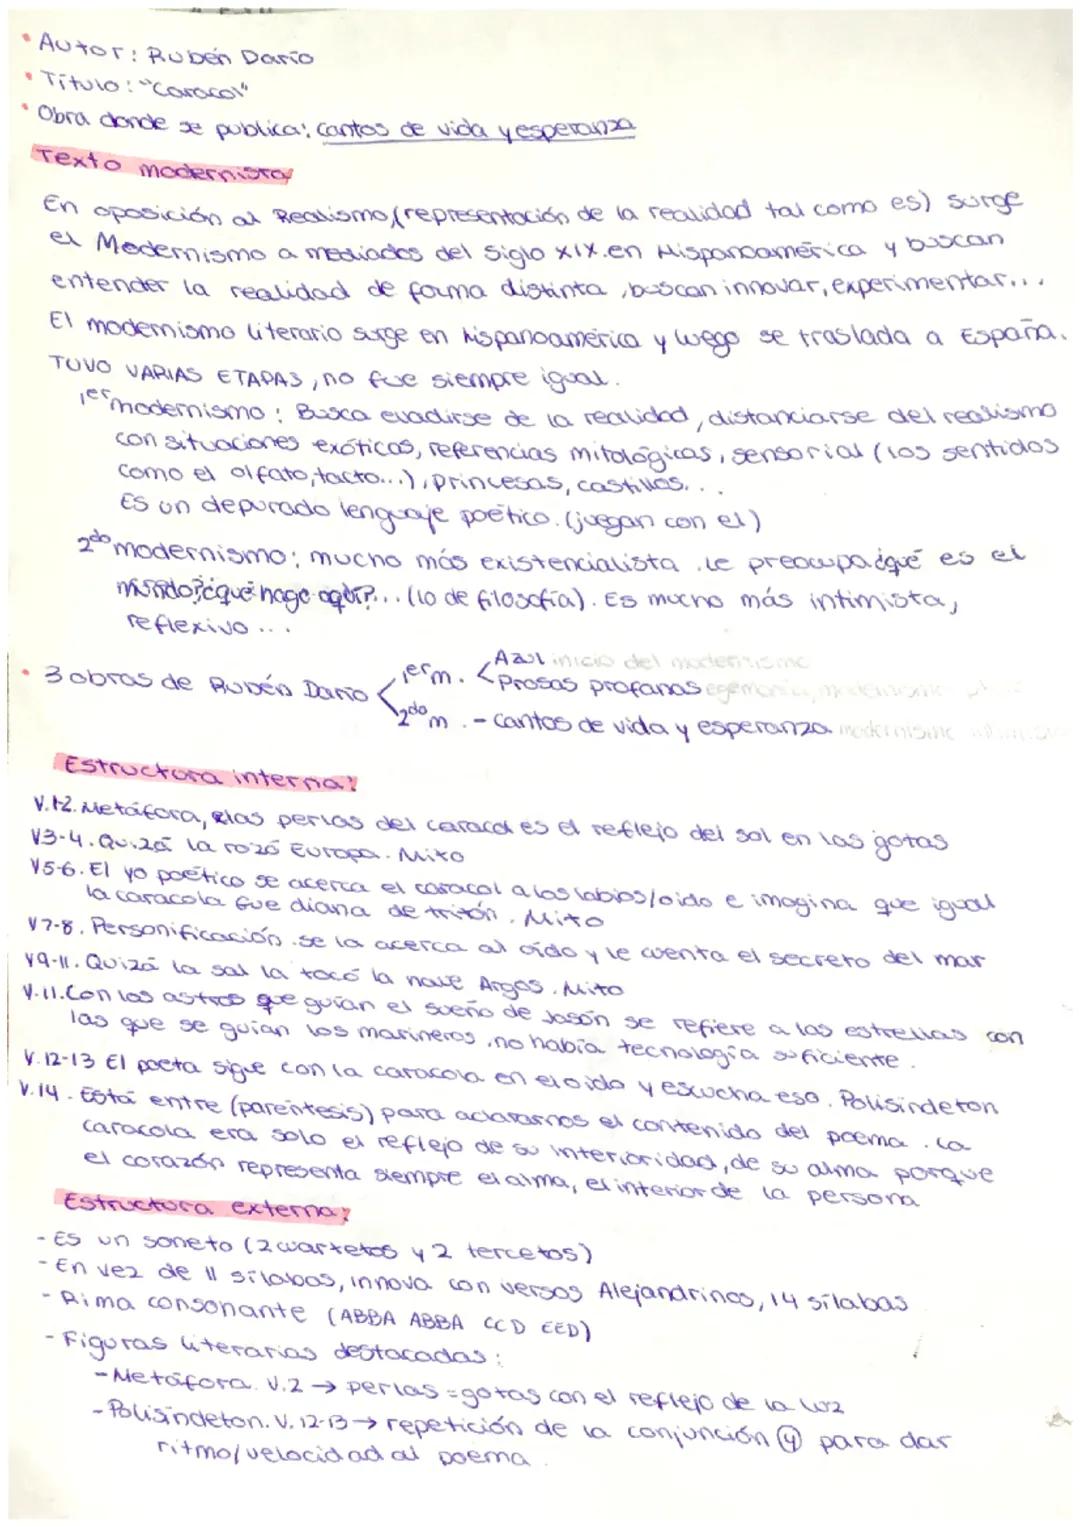 • Autor: Rubén Darío
• Título: "Caracol"
• Obra donde se publica: Cantos de vida y esperanza
Texto modernista
En oposición al Realismo (representación de la realidad tal como es) surge
el Modernismo a mediados del siglo XIX.en Hispanoamérica y buscan
entender la realidad de forma distinta, buscan innovar, experimentar...
El modernismo literario surge en hispanoamérica y luego se traslada a España.
TUVO VARIAS ETAPAS, no fue siempre igual.
1er modernismo: Busca evadirse de la realidad, distanciarse del realismo
con situaciones exóticas, referencias mitológicas, sensorial (los sentidos
como el olfato, tacto...), princesas, castillos...
Es un depurado lenguaje poético. (juegan con el)
2do modernismo: mucho más existencialista. Le preocupa ¿qué es el
mundo? ¿qué hago aquí?... (lo de filosofía). Es mucho más intimista,
reflexivo...
• 3 obras de Rubén Darío
1er m. < Azul inicio del modernismo
Prosas profanas
2do m. - Cantos de vida y esperanza modernismo
Estructura interna:
V.1-2. Metáfora, las perlas del caracol es el reflejo del sol en las gotas
V3-4. Quizá la rozó Europa. Mito
V5-6. El yo poético se acerca el caracol a los labios/oido e imagina que igual
la caracola fue diana de tritón. Mito
V7-8. Personificación. se la acerca al oído y le cuenta el secreto del mar
V9-11. Quizá la sal la tocó la nave Argos. Mito
V.11. Con los astros que guían el sueño de Jasón se refiere a las estrellas con
las que se guían los marineros, no había tecnología suficiente.
V.12-13 El poeta sigue con la caracola en el oido y escucha eso. Polisíndeton
V.14. Está entre (paréntesis) para aclararnos el contenido del poema. La
caracola era solo el reflejo de su interioridad, de su alma porque
el corazón representa siempre el alma, el interior de la persona
Estructura externa:
- Es un soneto (2 cuartetos y 2 tercetos)
- En vez de 11 sílabas, innova con versos Alejandrinos, 14 sílabas
- Rima consonante (ABBA ABBA CCD EED)
- Figuras literarias destacadas:
- Metáfora. V.2 → perlas = gotas con el reflejo de la luz
- Polisíndeton. V. 12-13 → repetición de la conjunción y para dar
ritmo/velocidad al poema.